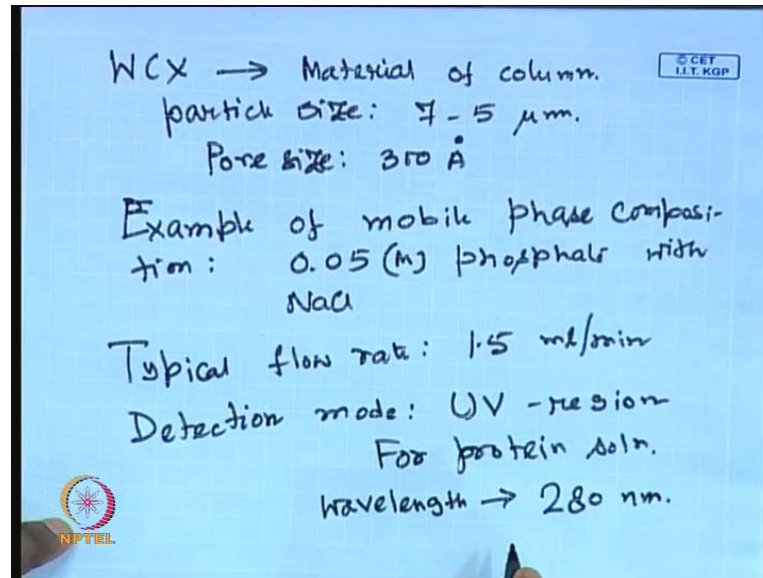 WCX → Material of column.
© CET
I.I.T. KGP
particle size: 7-5 μm.
Pore size: 300 Å
Example of mobile phase composi-
tion: 0.05 (M) phosphate with
NaCl
Typical flow rate: 1.5 ml/min
Detection mode: UV-region
For protein soln.
Wavelength → 280 nm.
NPTEL